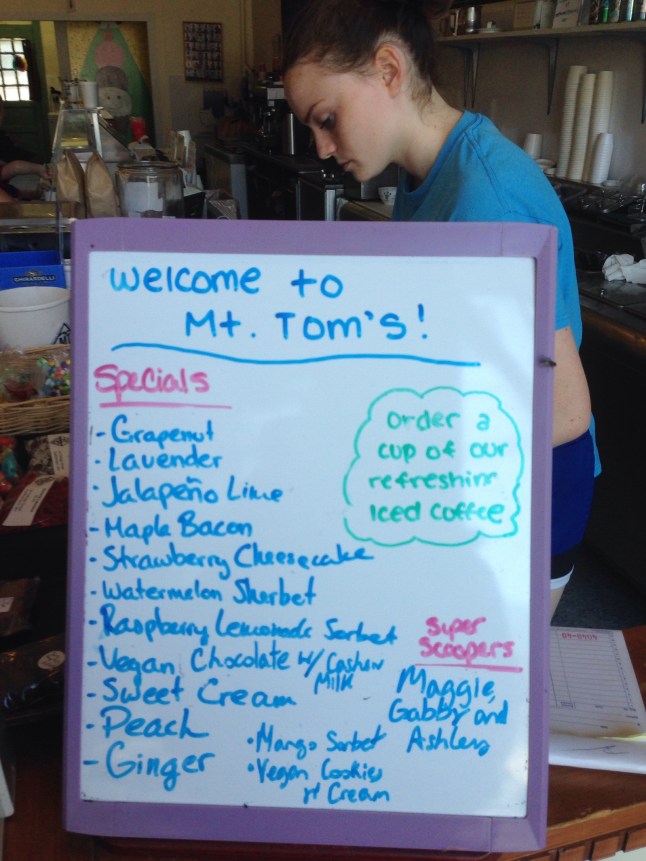 Welcome to
Mt. Tom's!
Specials
- Grapenut
- Lavender
- Jalapeño Lime
- Maple Bacon
- Strawberry Cheesecake
- Watermelon Sherbet
- Raspberry Lemonade Sorbet
- Vegan Chocolate w/ Cashew
Milk
- Sweet Cream
- Peach
- Ginger
• Mango Sorbet
• Vegan Cookies
n' Cream
Order a
cup of our
refreshing
Iced Coffee
Super
Scoopers
Maggie,
Gabby and
Ashley
GHIRARDELLI